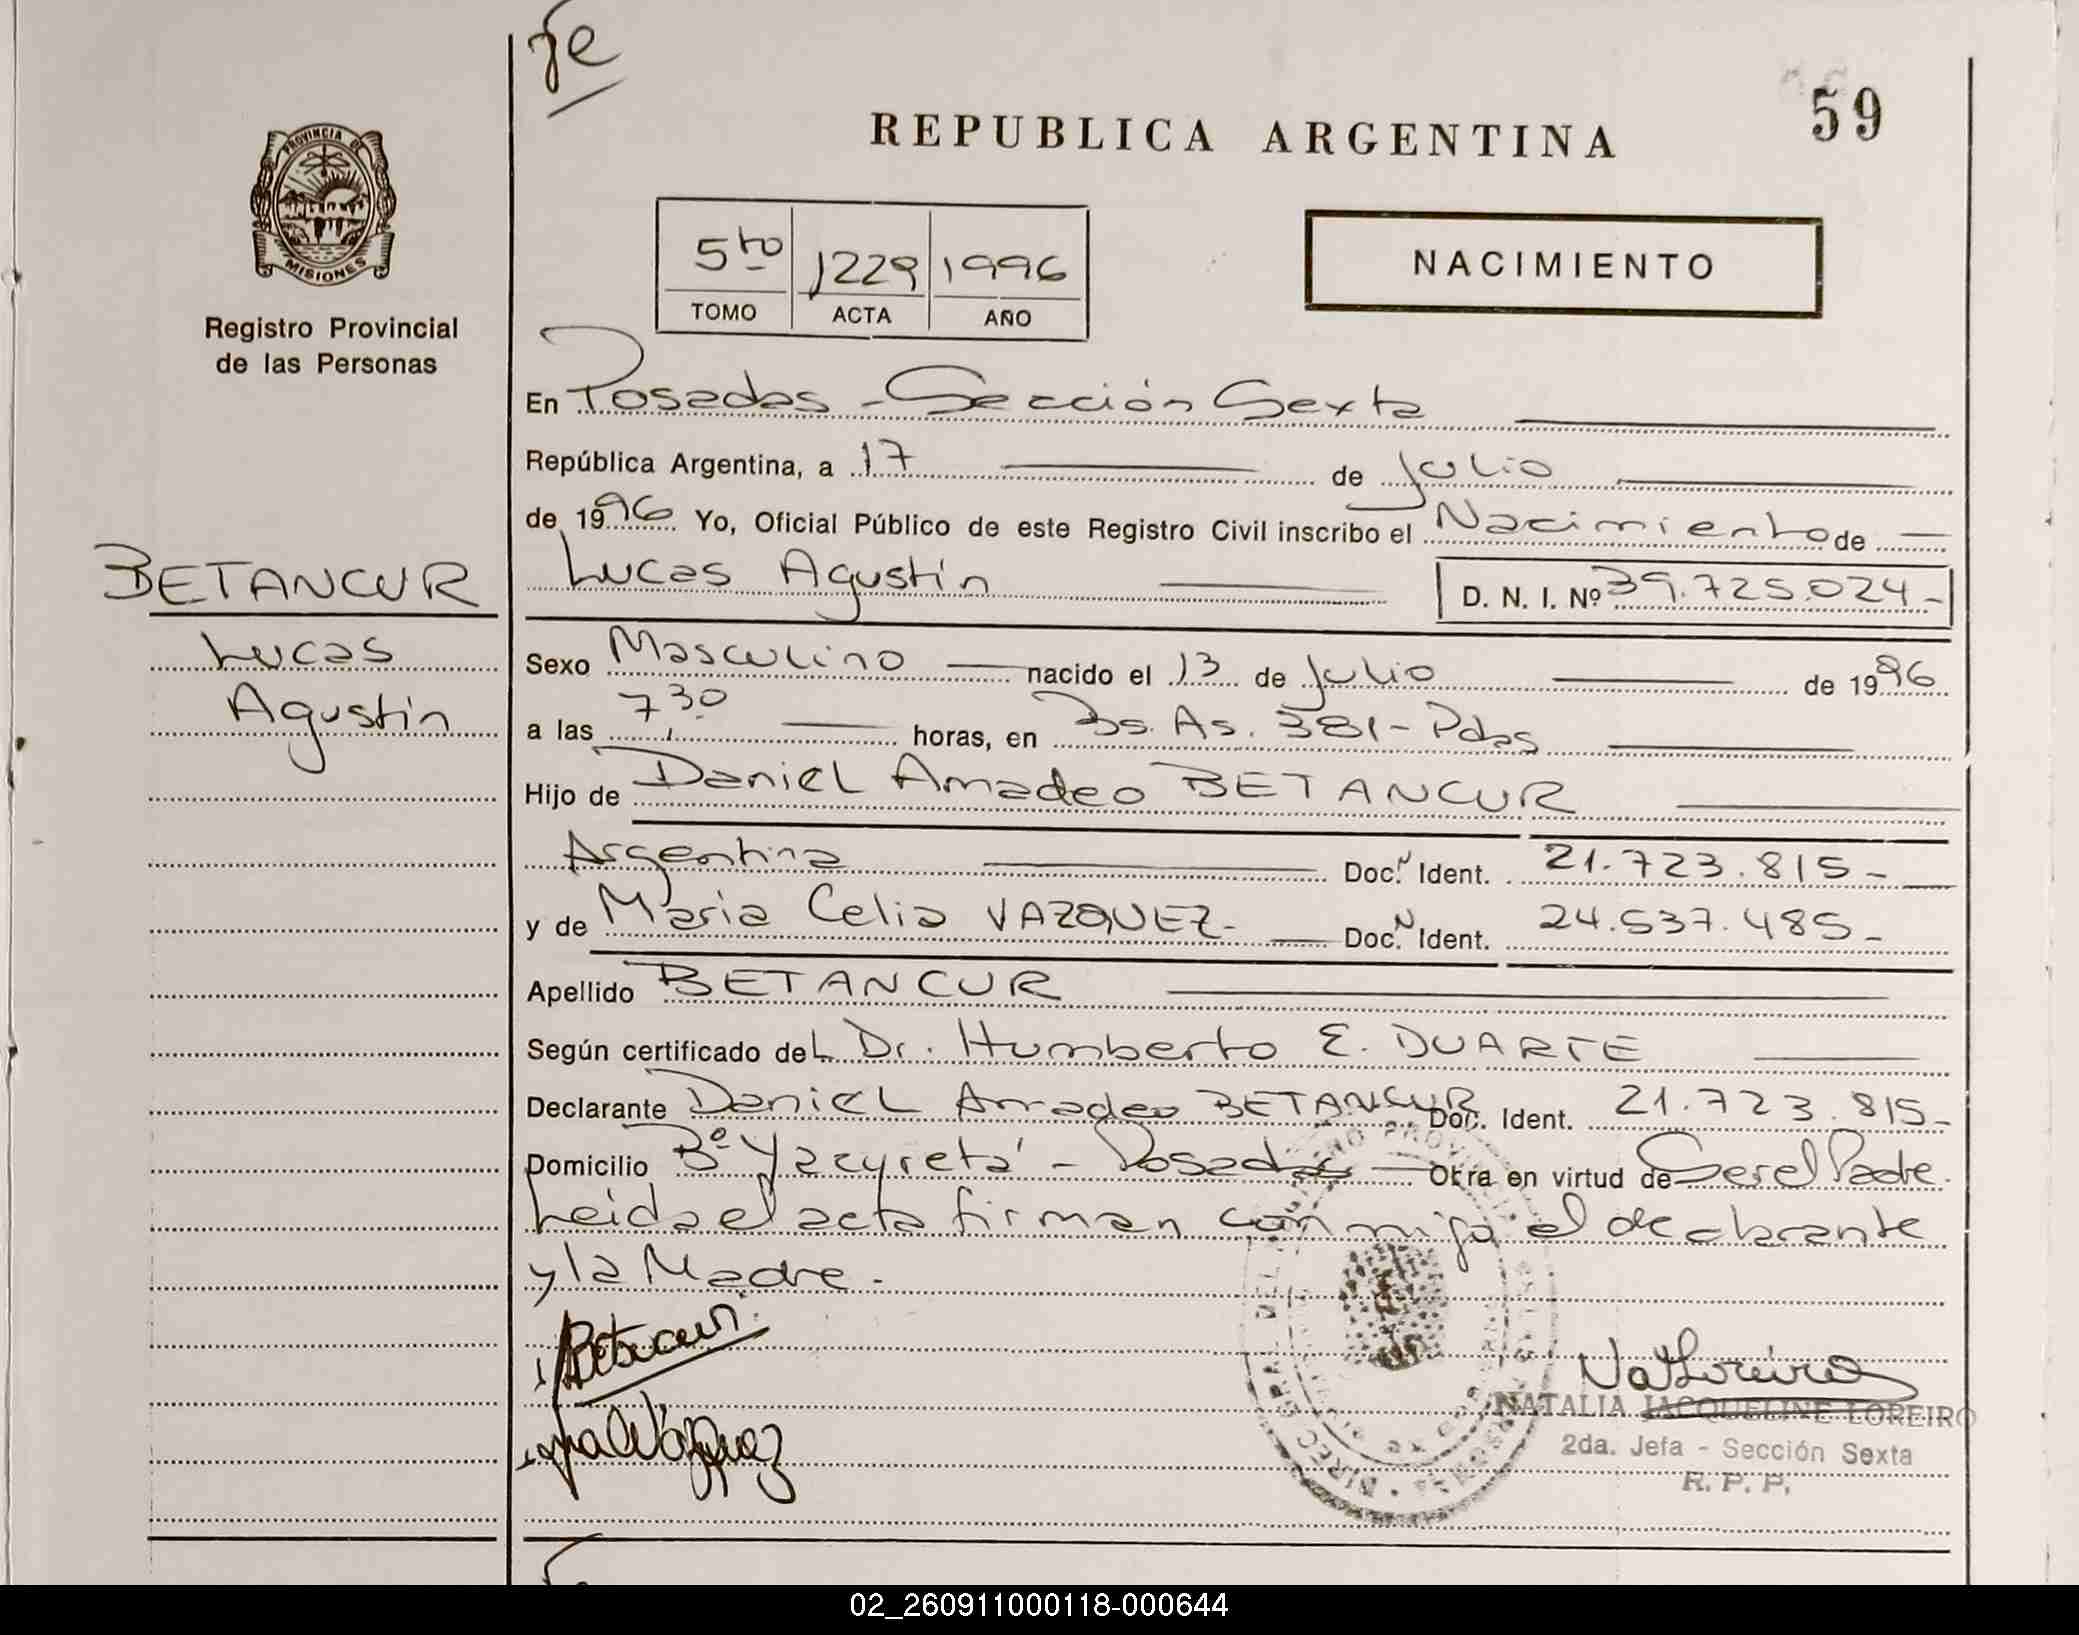 fe
59
REPUBLICA ARGENTINA
PROVINCIA DE
MISIONES
Registro Provincial
de las Personas
5to 1229 1996
TOMO ACTA AÑO
NACIMIENTO
En Posadas - Sección Sexta
República Argentina, a 17 de Julio
de 1996 Yo, Oficial Público de este Registro Civil inscribo el Nacimiento de
Lucas Agustín D. N. I. Nº 39.725.024-
BETANCUR
Lucas
Agustín
Sexo Masculino nacido el 13 de Julio de 1996
a las 7,30 horas, en Bs. As. 381 - Pdas
Hijo de Daniel Amadeo BETANCUR
Argentina Doc. Ident. 21.723.815-
y de Maria Celia VAZQUEZ- Doc. Ident. 24.537.485-
Apellido BETANCUR
Según certificado del Dr. Humberto E. DUARTE
Declarante Daniel Amadeo BETANCUR Doc. Ident. 21.723.815-
Domicilio Bº Yacyretá - Posadas Otra en virtud de Ser el Padre.
Leida el acta firman conmigo el declarante
y la Madre.-
Betancur
Vázquez
NATALIA JACQUELINE LOREIRO
2da. Jefa - Sección Sexta
R. P. P.
02_260911000118-000644